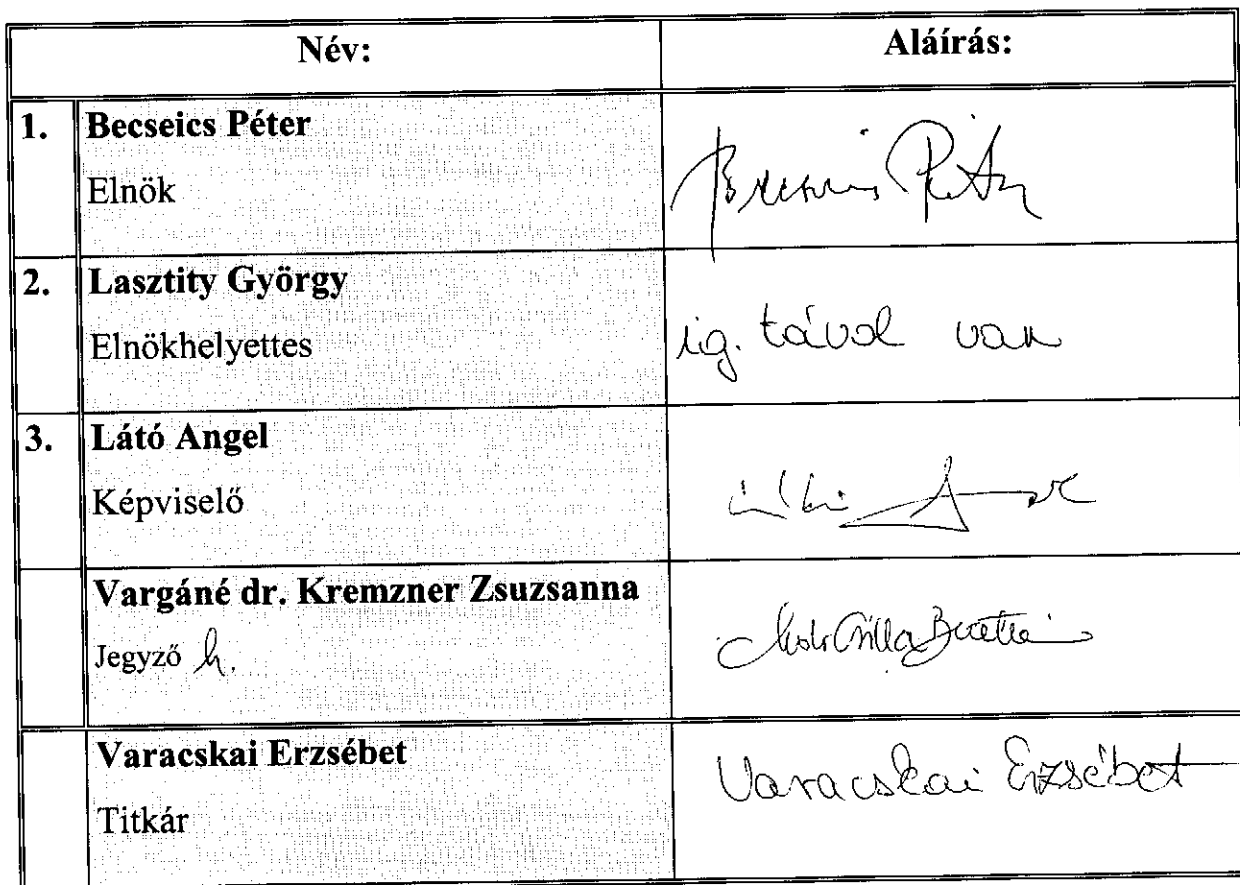 Név: Aláírás:
1. Becseics Péter
Elnök
Becseics Péter
2. Lasztity György
Elnökhelyettes
ig. távol van
3. Látó Angel
Képviselő
Vargáné dr. Kremzner Zsuzsanna
Jegyző h.
Varacskai Erzsébet
Titkár
Varacskai Erzsébet